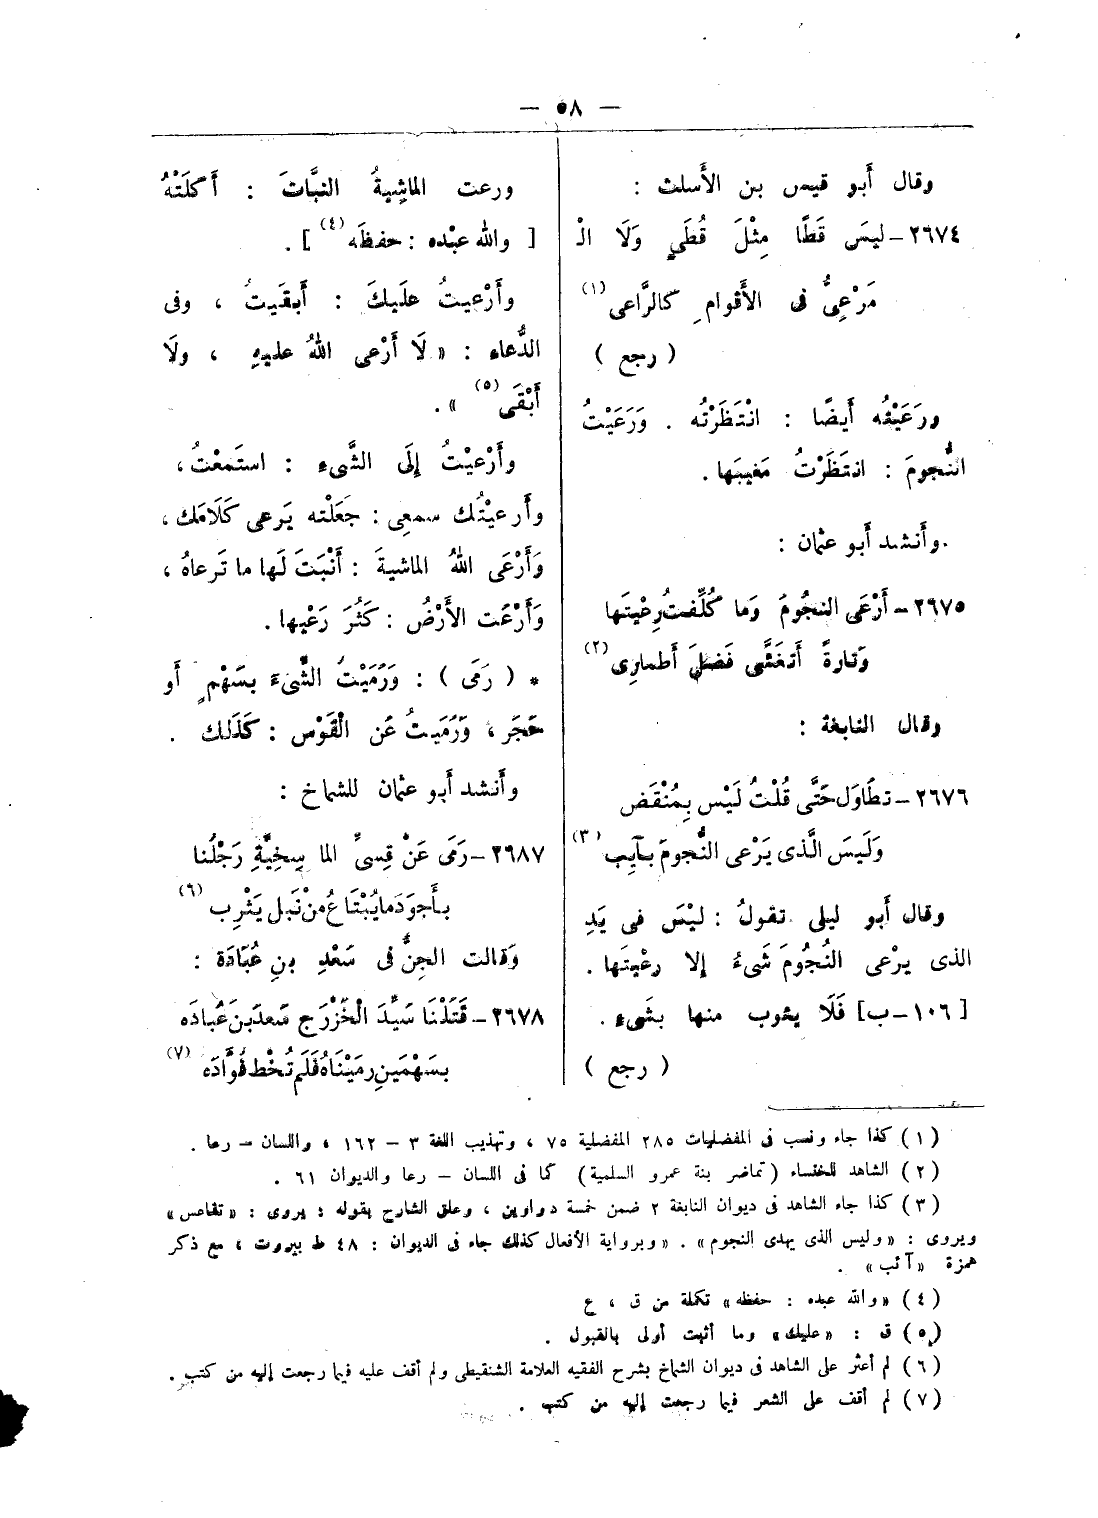 — ٥٨ —
وقال أَبو قيس بن الأَسلت :
٢٦٧٤ – ليسَ قَطًا مِثْلَ قُطَىٍ وَلَا الْ
مَرْعِىُّ فى الأَقوامِ كالرَّاعى (١)
( رجع )
ورَعَيْتُه أَيضًا : انْتَظَرْتُه . وَرَعَيْتُ
النُّجومَ : انتَظَرْتُ مَغيبَها .
وأَنشد أَبو عثمان :
٢٦٧٥ – أَرْعَى النجُومَ وَما كُلِّفتُ رِعْيتَها
وَتارةً أَتغَشَّى فَضلَ أَطمارِى (٢)
وقال النابغة :
٢٦٧٦ – تطَاوَل حَتَّى قُلْتُ لَيْس بِمُنْقَضٍ
وَلَيسَ الَّذى يَرْعى النُّجومَ بآيِبِ (٣)
وقال أَبو ليلى تقولُ : ليْسَ فى يَدِ
الذى يرْعى النُجُومَ شَىءُ إلا رعْيتَها .
[ ١٠٦ – ب ] فَلَا يئوب منها بشَىءٍ .
( رجع )
ورعت الماشِيةُ النبَّاتَ : أَكلَتْهُ
[ والله عبْده : حفظَه (٤) ] .
وأَرْعيتُ علَيكَ : أَبقَيتُ ، وفى
الدُّعاء : « لَا أَرْعى اللهُ عليهِ ، ولَا
أَبْقَى (٥) » .
وأَرْعيْتُ إلَى الشَّىءِ : استَمعْتُ ،
وأَرعيْتُك سمعِى : جَعَلْته يَرعى كَلَامَك ،
وَأَرْعَى اللهُ الماشيةَ : أَنْبَتَ لَها ما تَرعاهُ ،
وَأَرْعَت الأَرْضُ : كَثُرَ رَعْيها .
* ( رَمَى ) : وَرَمَيْتُ الشَّىءَ بسَهْمٍ أَو
حَجَر ، وَرَمَيتُ عَن الْقَوْس : كَذَلك .
وأَنشد أَبو عثمان للشماخ :
٢٦٨٧ – رَمَى عَنْ قِسىِّ الماسِخِيَّةِ رَجْلُنا
بأَجوَدَ ما يُبْتَاعُ منْ نَبل يَثْرِب (٦)
وَقالت الجِنُّ فى سَعْدِ بنِ عُبَادَة :
٢٦٧٨ – قَتَلْنَا سَيِّدَ الْخَزْرَجِ سَعدَ بنَ عُبادَه
بسَهْمَينِ رمَيْنَاهُ فَلَم تُخْط فُوَّادَه (٧)
(١) كذا جاء ونسب فى المفضليات ٢٨٥ المفضلية ٧٥ ، وتهذيب اللغة ٣ – ١٦٢ ، واللسان – رعا .
(٢) الشاهد للخنساء (تماضر بنة عمرو السلمية) كما فى اللسان – رعا والديوان ٦١ .
(٣) كذا جاء الشاهد فى ديوان النابغة ٢ ضمن خمسة دواوين ، وعلق الشارح بقوله : يروى : «تقاعس»
ويروى : «وليس الذى يهدى النجوم» . «وبرواية الأفعال كذلك جاء فى الديوان : ٤٨ ط بيروت ، مع ذكر
همزة «آئب» .
(٤) «والله عبده : حفظه» تكملة من ق ، ع
(٥) ق : «عليك» وما أثبت أولى بالقبول .
(٦) لم أعثر على الشاهد فى ديوان الشماخ بشرح الفقيه العلامة الشنقيطى ولم أقف عليه فيما رجعت إليه من كتب .
(٧) لم أقف على الشعر فيما رجعت إليه من كتب .